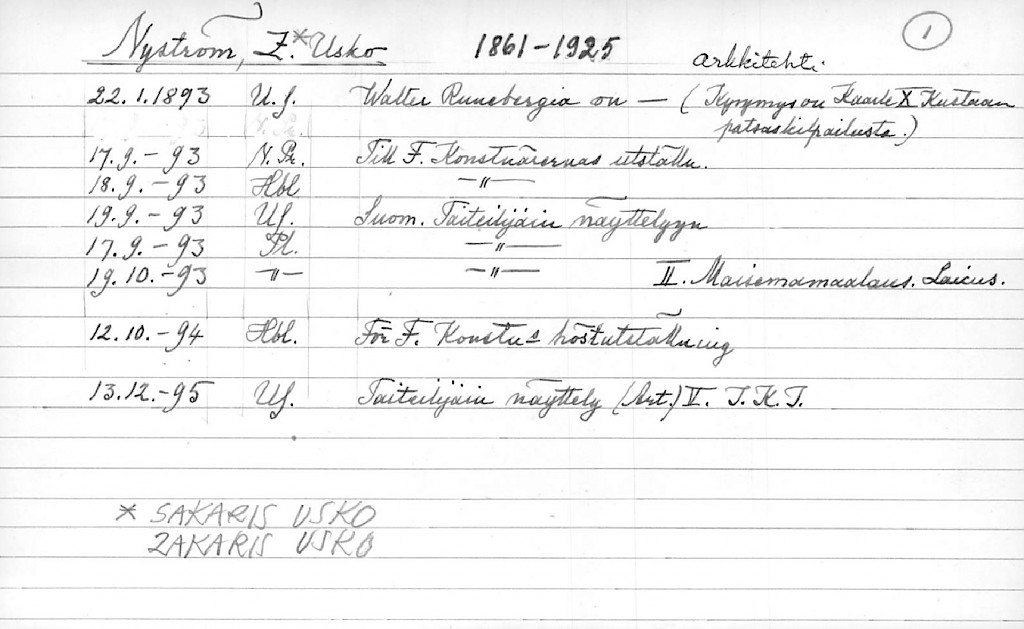 Nyström, Z.* Usko 1861–1925 arkkitehti. 1
22.1.1893 U.S. Walter Runebergia on — (Kysymys on Kaarle X Kustaan
patsaskilpailusta.)
17.9.–93 N.Pr. Till F. Konstnärernas utställn.
18.9.–93 Hbl. –〃–
19.9.–93 US. Suom. Taiteilijain näyttelyyn
17.9.–93 Pl. –〃–
19.10.–93 –〃– –〃– II. Maisemamaalaus.
12.10.–94 Hbl. För F. Konstn:s höstutställning
13.12.–95 US. Taiteilijain näyttely (Art.) V. J.K.J.
* SAKARIS USKO
ZAKARIS USKO